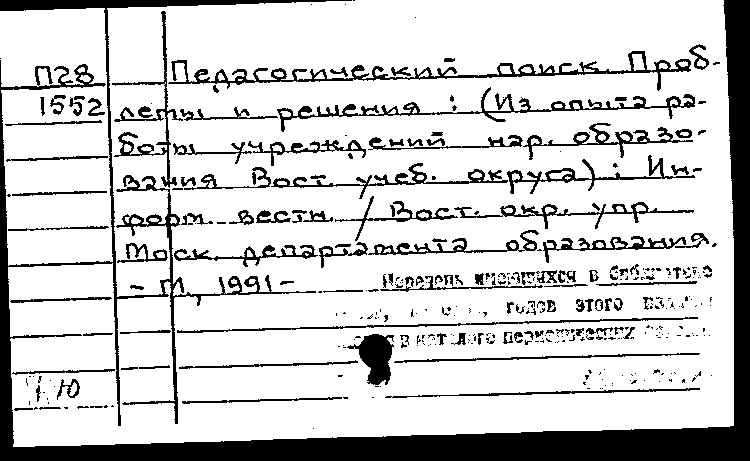 П28 Педагогический поиск. Проб-
1552 лемы и решения : (Из опыта ра-
боты учреждений нар. образо-
вания Вост. учеб. округа) : Ин-
форм. вестн. / Вост. окр. упр.
Моск. департамента образования.
- М., 1991-
Перечень имеющихся в библиотеке
годов этого
в каталоге периодических
10